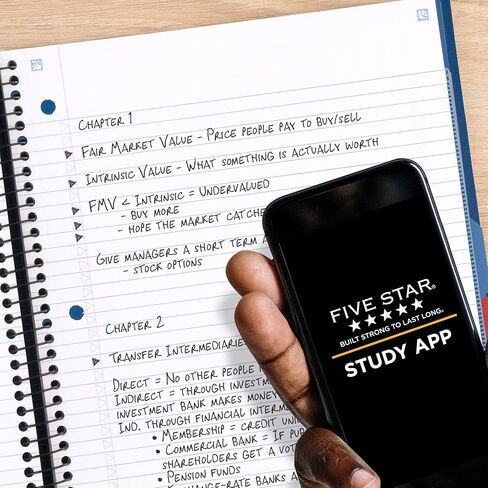 CHAPTER 1
FAIR MARKET VALUE - PRICE PEOPLE PAY TO BUY/SELL
INTRINSIC VALUE - WHAT SOMETHING IS ACTUALLY WORTH
FMV < INTRINSIC = UNDERVALUED
- BUY MORE
- HOPE THE MARKET CATCHE
GIVE MANAGERS A SHORT TERM
- STOCK OPTIONS
CHAPTER 2
TRANSFER INTERMEDIARIE
DIRECT = NO OTHER PEOPLE
INDIRECT = THROUGH INVESTM
INVESTMENT BANK MAKES MONEY
IND. THROUGH FINANCIAL INTERM
• MEMBERSHIP = CREDIT UNI
• COMMERCIAL BANK = IF PUB
SHAREHOLDERS GET A VOT
• PENSION FUNDS
EXCHANGE-RATE BANKS
FIVE STAR®
★★★★★
BUILT STRONG TO LAST LONG.
STUDY APP